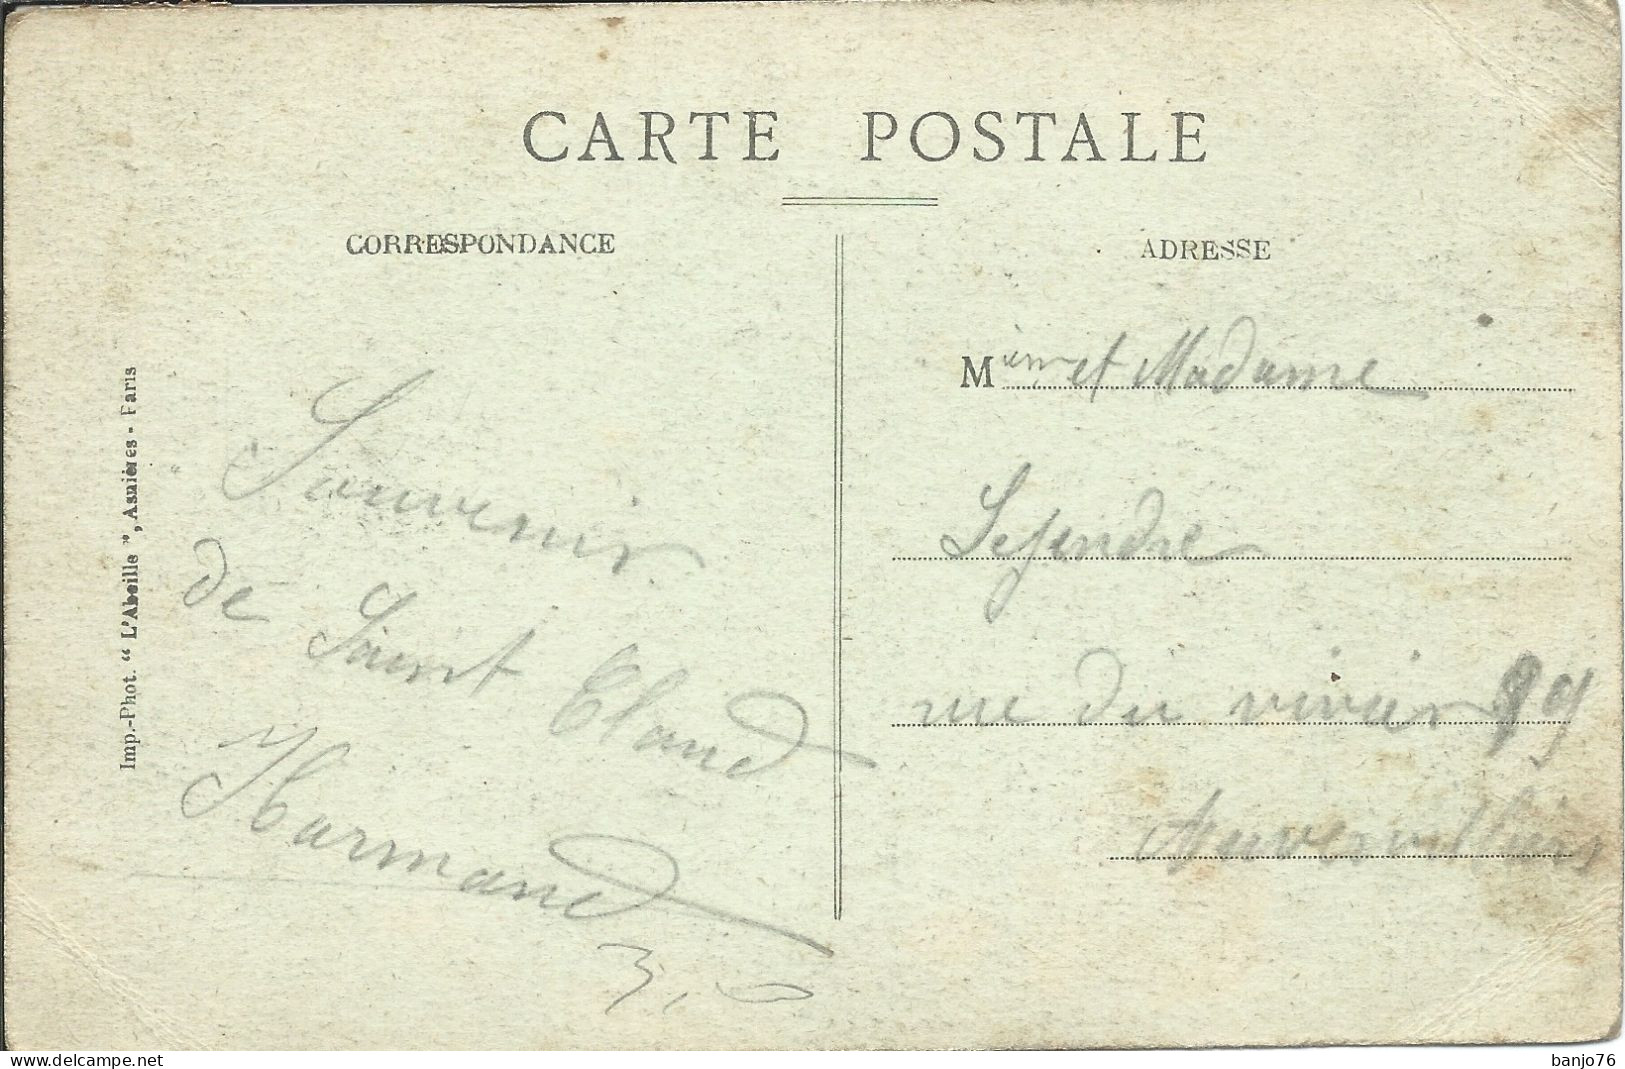 CARTE POSTALE
CORRESPONDANCE
ADRESSE
Imp.-Phot. “ L'Abeille ”, Asnières - Paris
Souvenir
de Saint Claud
Harmand
M et Madame
Lejendre
rue du vivier 89
Auvervilliers
delcampe.net
banjo76